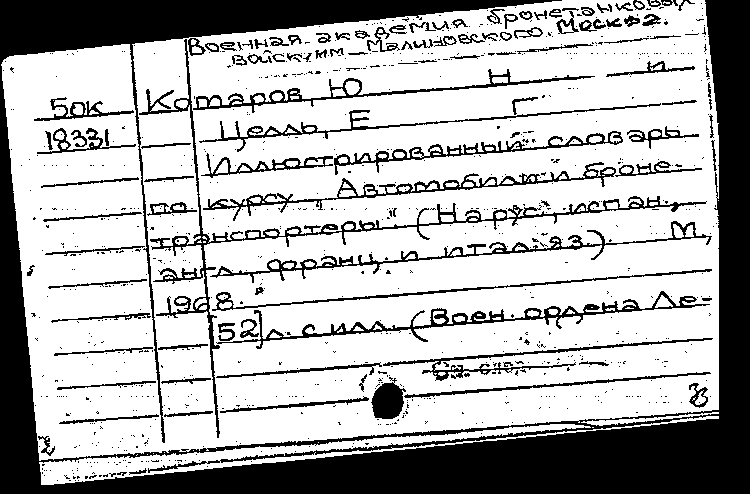 Военная академия бронетанковых
войск им. Малиновского. Москва.
50к Котаров, Ю Н и
18331 Целль, Е Г
Иллюстрированный словарь
по курсу „Автомобили и броне-
транспортеры". (На рус., испан.,
англ., франц. и итал. яз.). М.,
1968.
[52] л. с илл. (Воен. ордена Ле-
См. след.